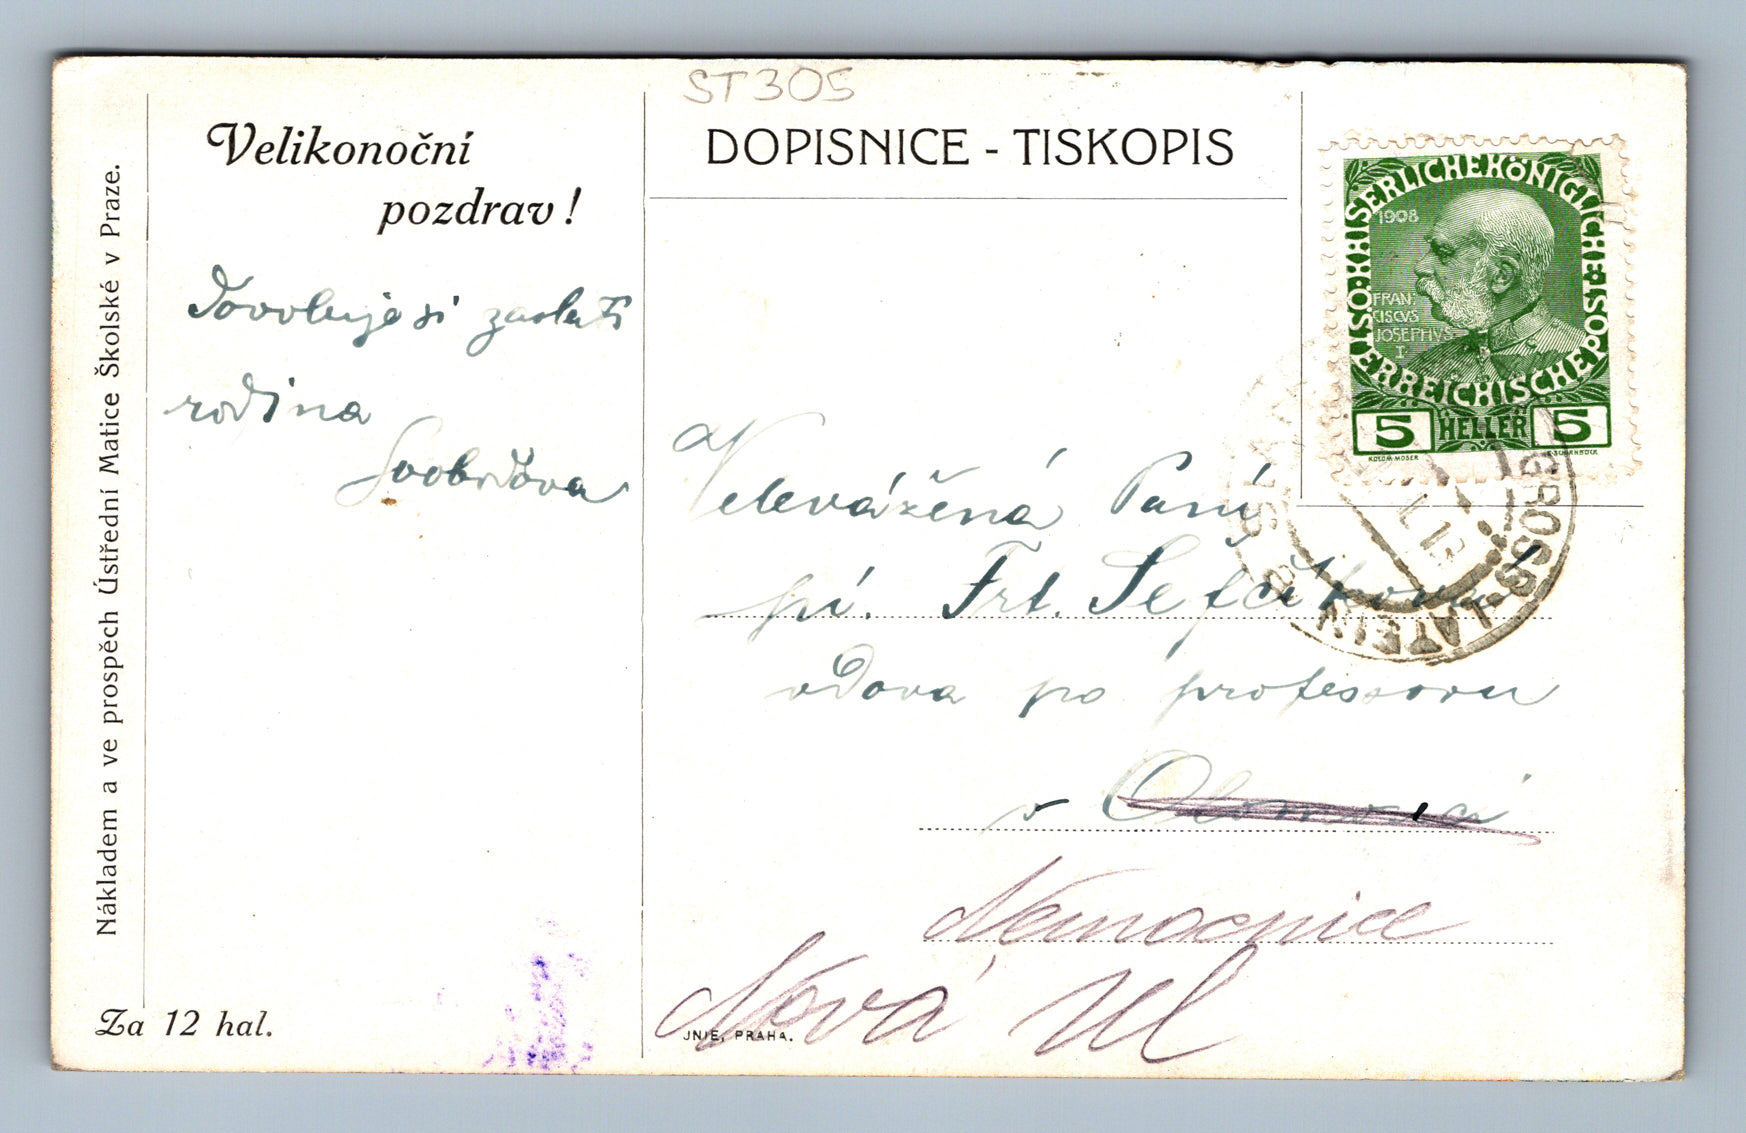 ST305
Velikonoční
pozdrav!
DOPISNICE - TISKOPIS
Dovoluje si zaslati
rodina
Svobodova
Velevážená Paní
pí. Frt. Šefčíkova
vdova po professoru
v Olomouci
Nemocnice
Nová Ul
Nákladem a ve prospěch Ústřední Matice Školské v Praze.
Za 12 hal.
JNIE, PRAHA.
KAISERLICHEKÖNIGLICHE
ÖSTERREICHISCHE POST
1908
FRAN:
CISCVS
JOSEPHVS
I
5 HELLER 5
KOLOM. MOSER
GROSS-LATEIN